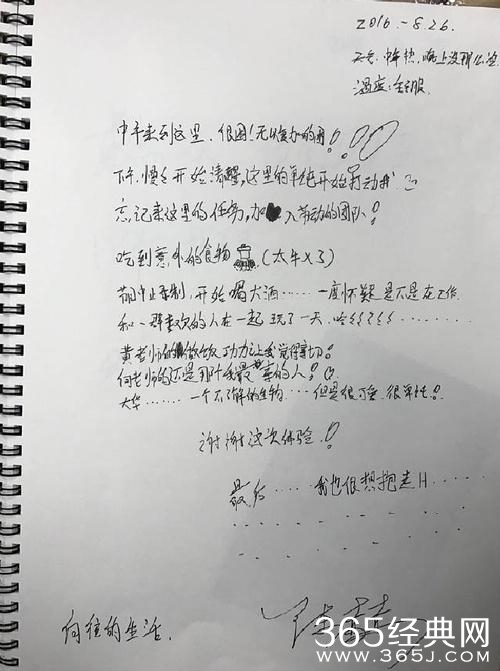 2016-8.26.
天气：中午热，晚上没那么热
温度：舒服
中午来到这里，很困！无以复加的困！！
下午，慢慢开始清醒，这里的单纯开始打动我
忘记来这里的任务，加入劳动的团队！
吃到意外的食物（太牛X了）
节目止录制，开始喝大酒……一度怀疑是不是在工作
和一群喜欢的人在一起玩了一天，哈
黄老师的做饭功力让我觉得亲切！
何老师的还是那个我最爱的人！
大华………一个不了解的生物……但是很可爱，很单纯！
谢谢这次体验！！
最后……我也很想抱走H……
向往的生活.
365经典网
www.365J.com